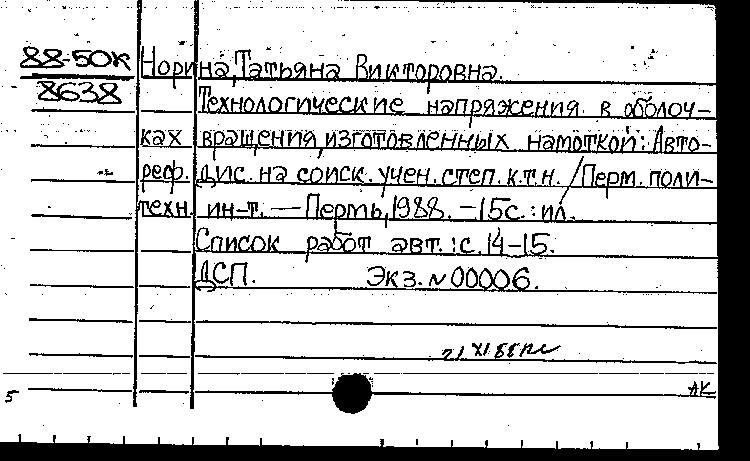 88-50К
8638
Норина, Татьяна Викторовна.
Технологические напряжения в оболоч-
ках вращения, изготовленных намоткой: Авто-
реф. дис. на соиск. учен. степ. к.т.н. / Перм. поли-
техн. ин-т. — Пермь, 1988. - 15с. : ил.
Список работ авт.: с. 14-15.
ДСП. Экз. № 00006.
5
АК